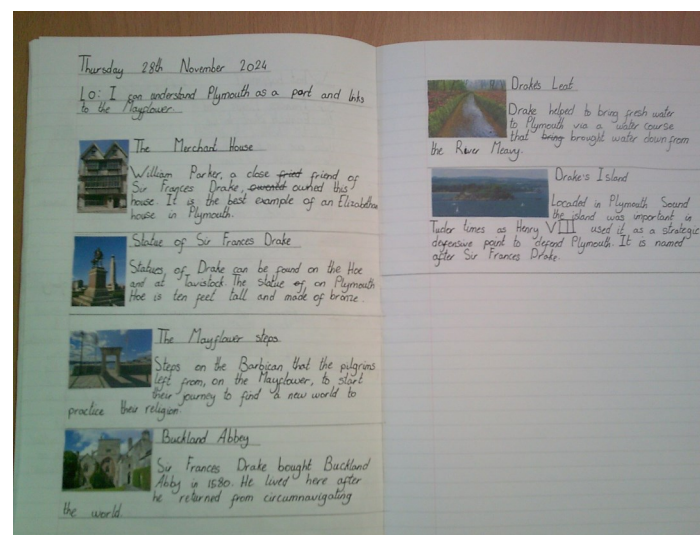 Thursday 28th November 2024
LO: I can understand Plymouth as a port and links
to the Mayflower
The Merchant House
William Parker, a close fried friend of
Sir Frances Drake, owened owned this
house. It is the best example of an Elizabethan
house in Plymouth.
Statue of Sir Frances Drake
Statues, of Drake can be found on the Hoe
and at Tavistock. The statue of on Plymouth
Hoe is ten feet tall and made of bronze.
The Mayflower steps
Steps on the Barbican that the pilgrims
left from, on the Mayflower, to start
their journey to find a new world to
practice their religion
Buckland Abbey
Sir Frances Drake bought Buckland
Abby in 1580. He lived here after
he returned from circumnavigating
the world.
Drake's Leat
Drake helped to bring fresh water
to Plymouth via a water course
that bring brought water down from
the River Meavy.
Drake's Island
Locaded in Plymouth Sound
the island was important in
Tudor times as Henry VIII used it as a strategic
defensive point to defend Plymouth. It is named
after Sir Frances Drake.